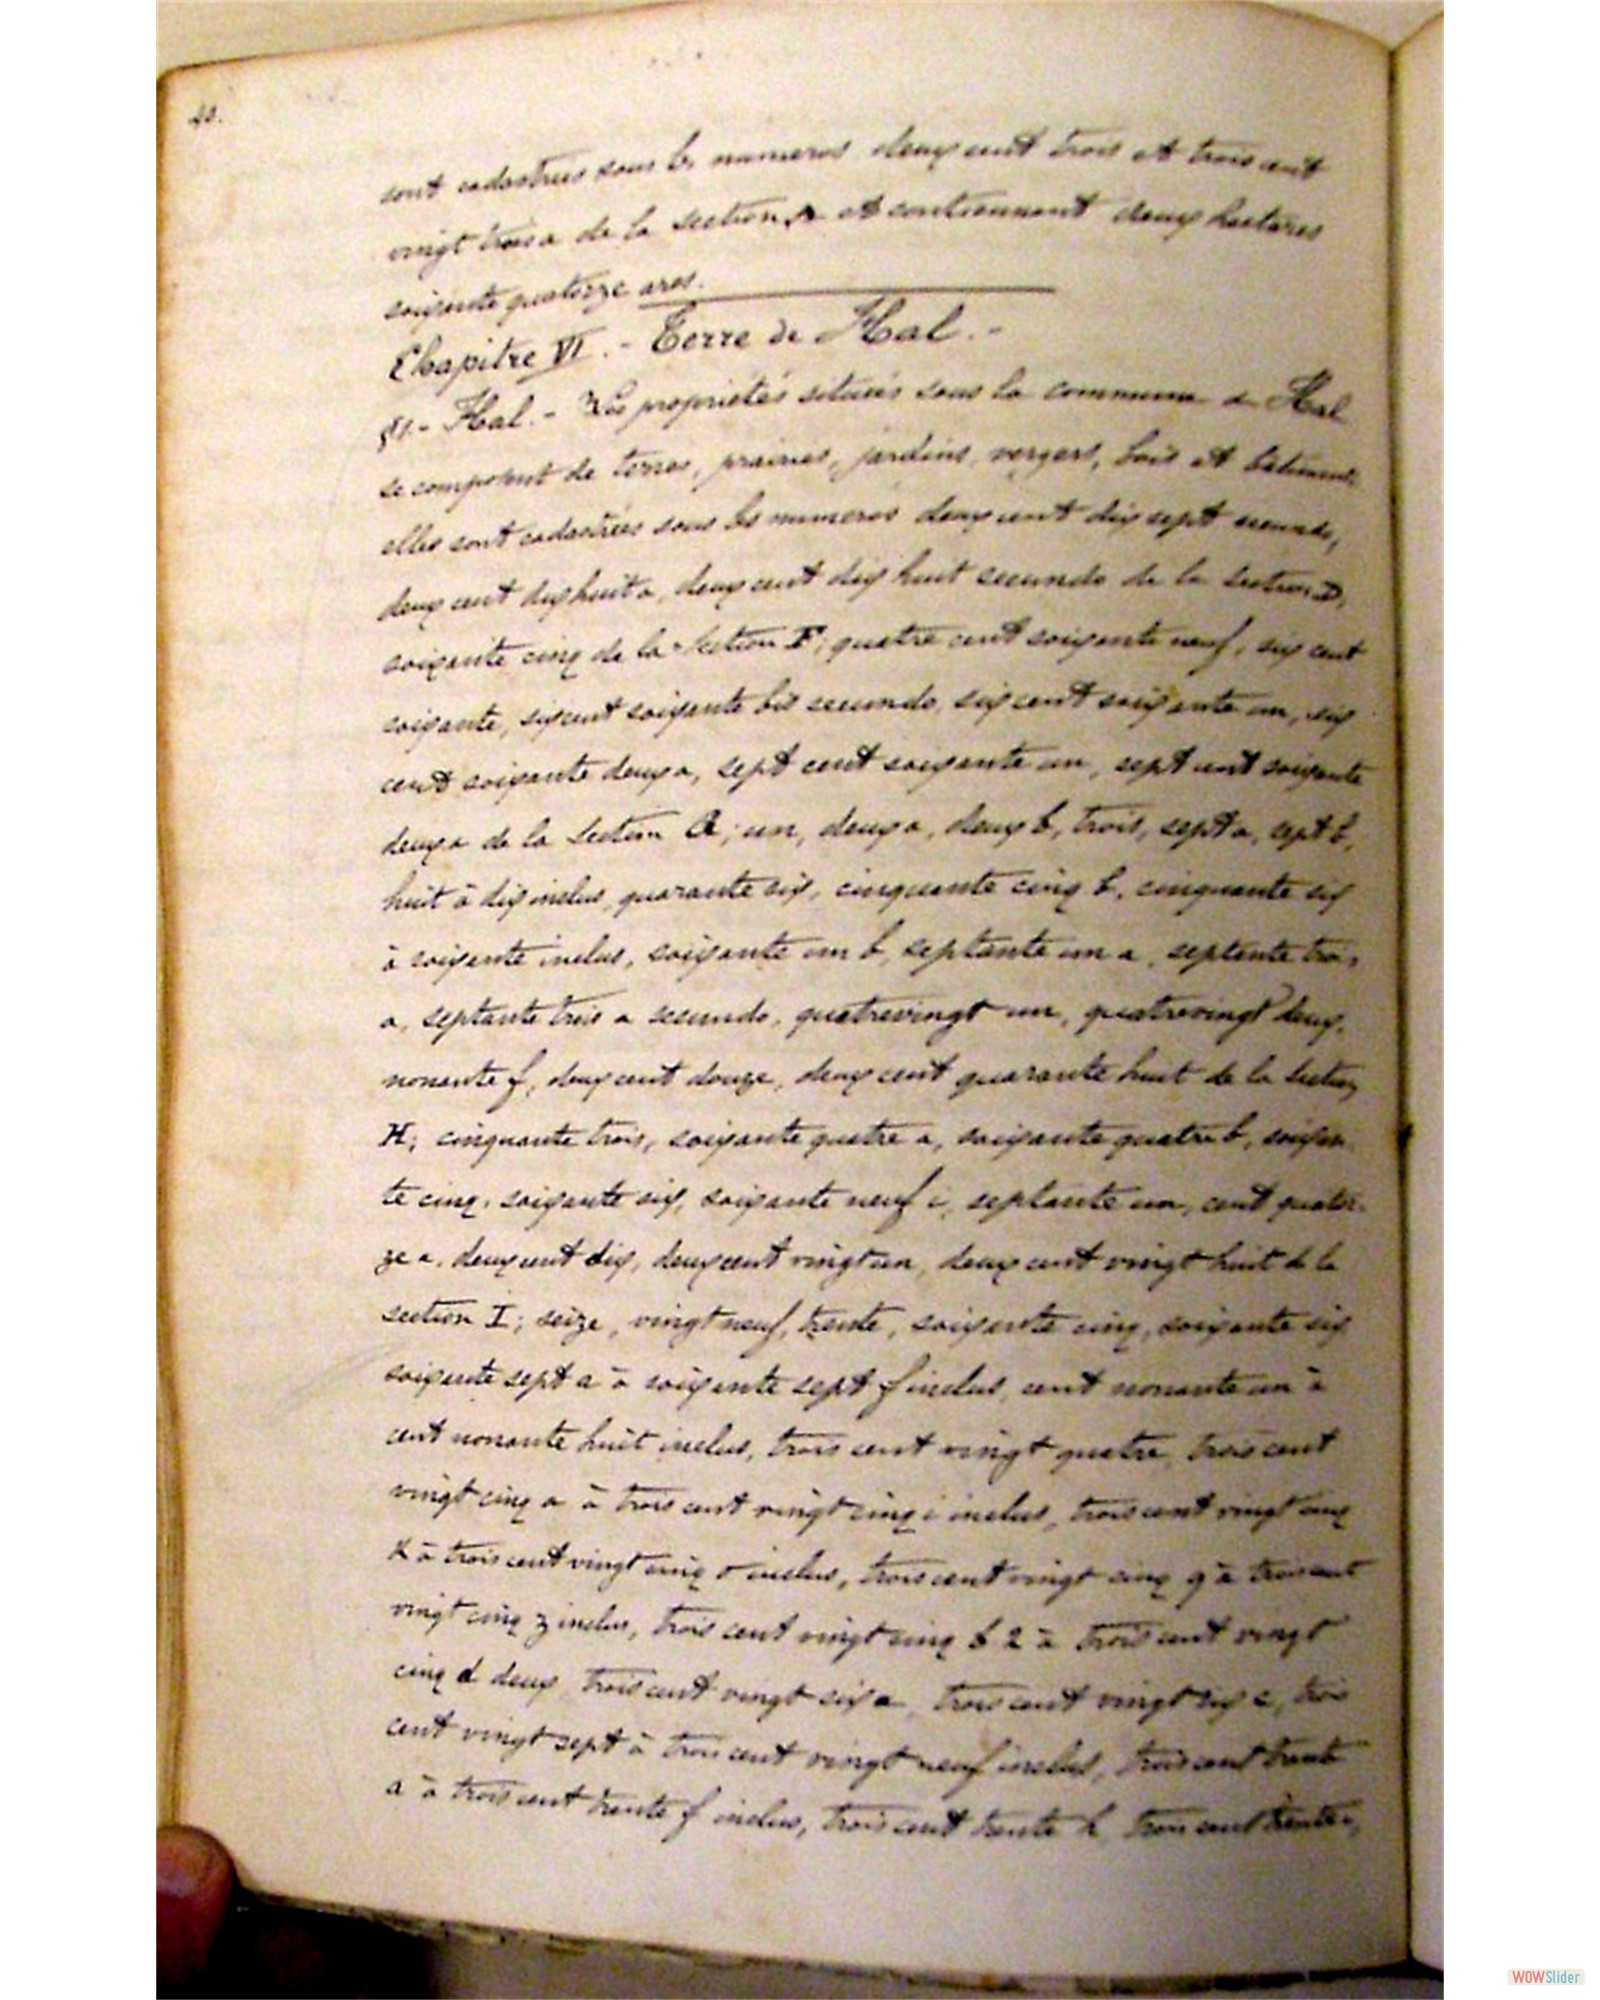 40.
sont cadastrées sous les numeros deux cent trois et trois cent
vingt trois a de la section A et contiennent deux hectares
soixante quatorze ares.
Chapitre VI. - Terre de Hal. -
§1. - Hal. - Les propriétés situées sous la commune de Hal
se composent de terres, prairies, jardins, vergers, bois et bâtiments
elles sont cadastrées sous les numeros deux cent dix sept secundo,
deux cent dix huit a, deux cent dix huit secundo de la section D,
soixante cinq de la Section F; quatre cent soixante neuf, six cent
soixante, six cent soixante bis secundo, six cent soixante un, six
cent soixante deux a, sept cent soixante un, sept cent soixante
deux a de la Section G; un, deux a, deux b, trois, sept a, sept b,
huit à dix inclus, quarante six, cinquante cinq b, cinquante six
à soixante inclus, soixante un b, septante un a, septante trois
a, septante trois a secundo, quatrevingt un, quatrevingt deux,
nonante f, deux cent douze, deux cent quarante huit de la section
H; cinquante trois, soixante quatre a, soixante quatre b, soixan
te cinq, soixante six, soixante neuf i, septante un, cent quator-
ze a, deux cent dix, deux cent vingt un, deux cent vingt huit de la
section I; seize, vingt neuf, trente, soixante cinq, soixante six
soixante sept a à soixante sept f inclus, cent nonante un à
cent nonante huit inclus, trois cent vingt quatre, trois cent
vingt cinq a à trois cent vingt cinq i inclus, trois cent vingt cinq
k à trois cent vingt cinq o inclus, trois cent vingt cinq q à trois cent
vingt cinq z inclus, trois cent vingt cinq b 2 à trois cent vingt
cinq d deux, trois cent vingt six a, trois cent vingt six c, trois
cent vingt sept à trois cent vingt neuf inclus, trois cent trente
a à trois cent trente f inclus, trois cent trente h, trois cent trente
WOWSlider